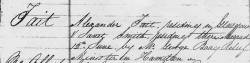 Tait
Alexander Tait residing in Glasgow
& Janet Smith residing there Married
12th June by Mr George
Minister in Hamilton